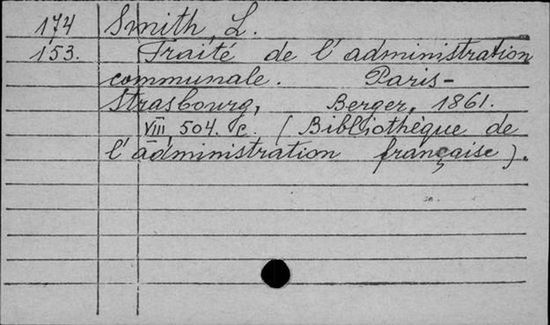 174 Smith, L.
153. Traité de l'administration
communale. Paris-
Strasbourg, Berger, 1861.
VIII 504. c. (Bibliothèque de
l'administration française).